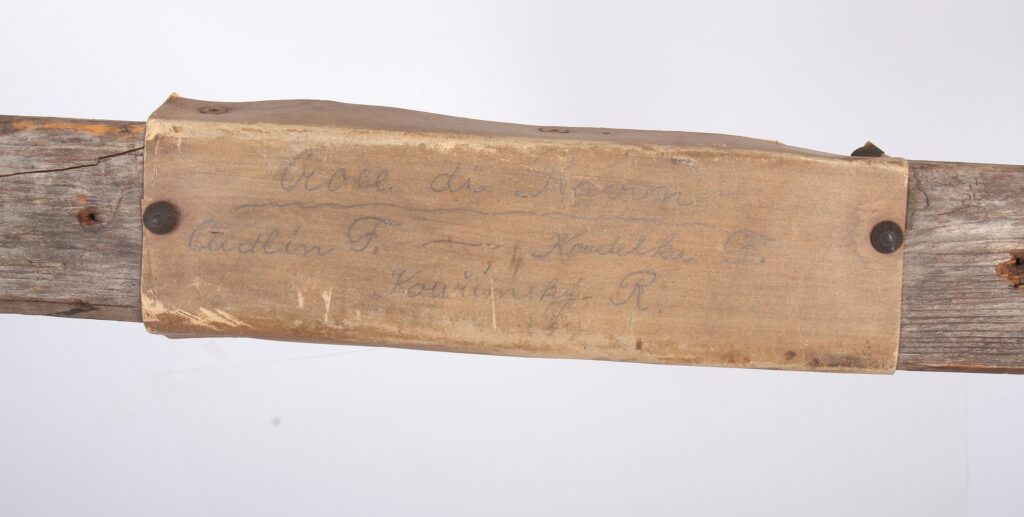 Croce di Pravon
Cudlín F. — Koudelka F.
Kouřimský R.